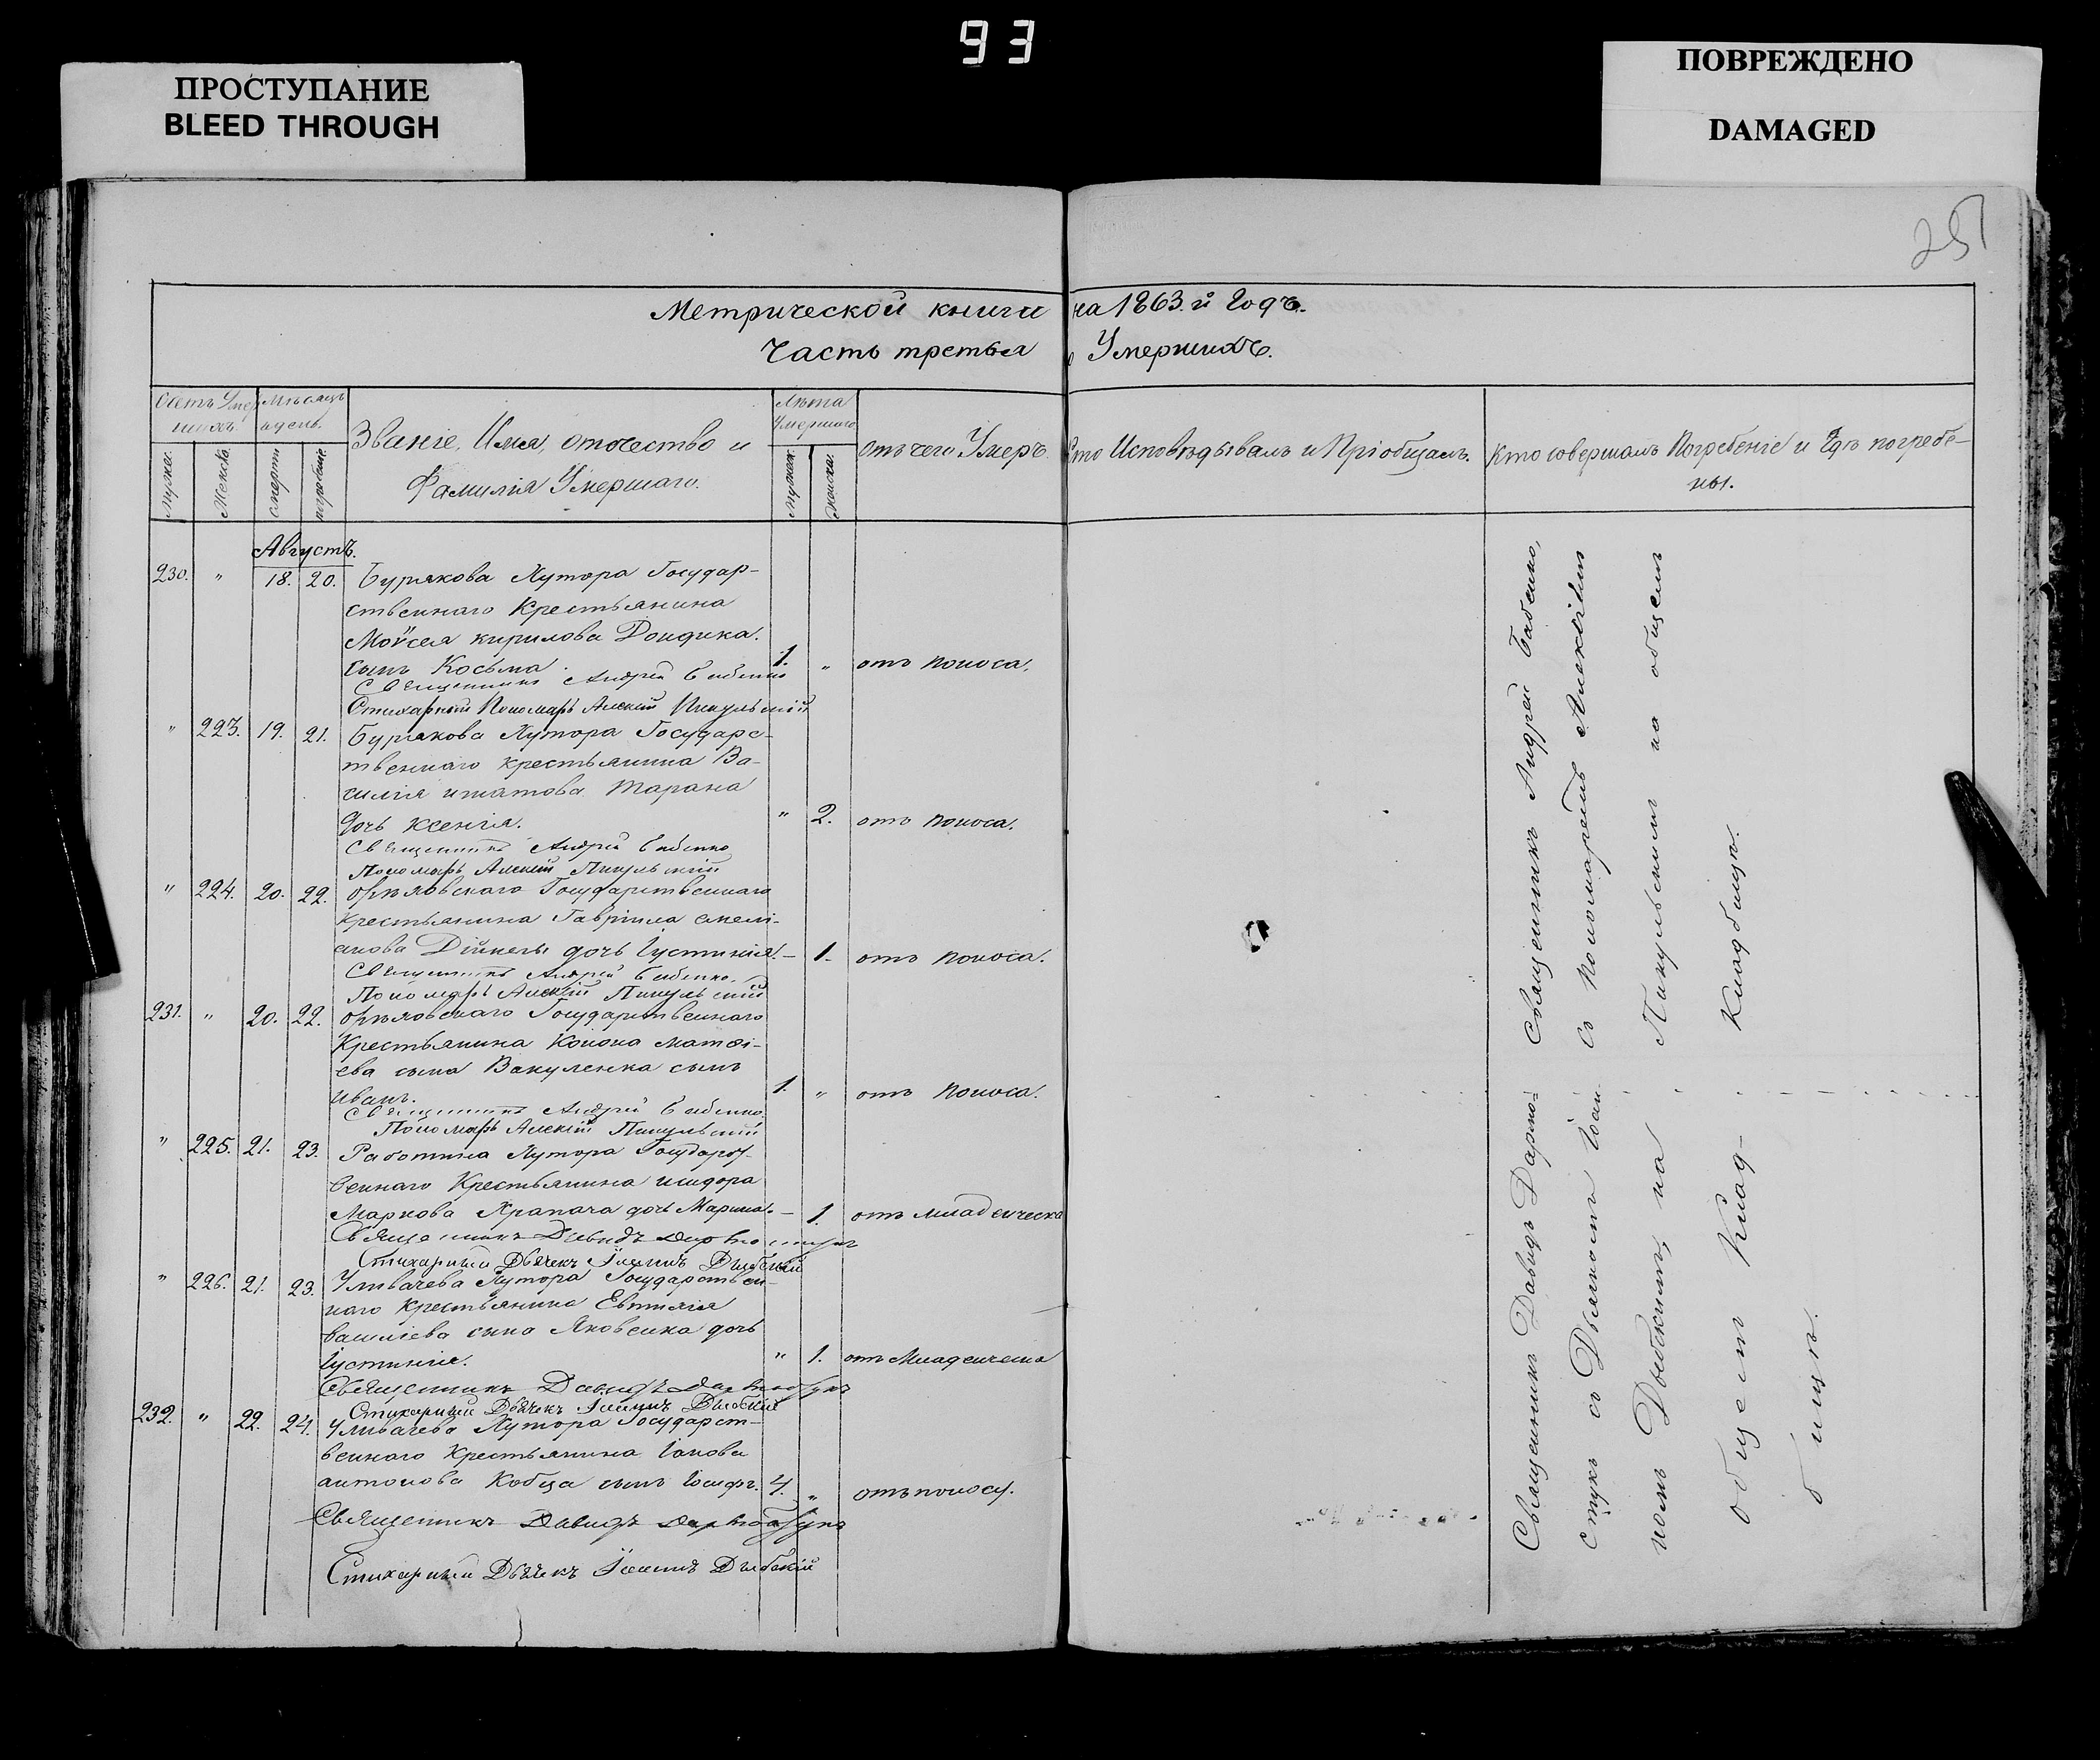 93
ПРОСТУПАНИЕ
BLEED THROUGH
ПОВРЕЖДЕНО
DAMAGED
251
Метрической книги на 1863.й Годъ.
Часть третья о Умершихъ.
Счетъ Умер
шихъ
Мѣсяцъ
и день.
Званіе, Имя, отчество и
Фамилія Умершаго.
Лѣта
Умершаго
отъ чего Умеръ
Кто Исповѣдывалъ и Пріобщалъ.
Кто совершалъ Погребеніе и Гдѣ погребе-
ны.
Мужеск.
Женска.
смерти
погребенія
мужеск.
женска.
Августъ.
230. " 18. 20. Бурякова Хутора Государ-
ственнаго Крестьянина
Мойсея кирилова Дондика.
сынъ Косьма. 1. " отъ поноса.
Священникъ Андрей Бабенко
Стихарный Пономарь Алексій Пикульскій
" 223. 19. 21. Бурякова Хутора Государс-
твеннаго крестьянина Ва-
силія игнатова Тарана
дочь Ксенія. " 2. отъ поноса.
Священникъ Андрей Бабенко
Пономарь Алексій Пикульскій
" 224. 20. 22. орѣховскаго Государственнаго
Крестьянина Гавріила емели-
анова Дійнеги дочь Іустинія. — 1. отъ поноса.
Священникъ Андрей Бабенко.
Пономарь Алексій Пикульскій
231. " 20. 22. орѣховскаго Государственнаго
Крестьянина Конона матѳі-
ева сына Вакуленка сынъ
Иванъ. 1. " отъ поноса.
Священникъ Андрей Бабенко
Пономарь Алексій Пикульскій
" 225. 21. 23. Работина Хутора Государст-
веннаго Крестьянина исидора
Маркова Храпача дочь Марина. — 1. отъ младенческа
Священникъ Давидъ
Стихарный Дьячекъ Іоаннъ Дыбскій
" 226. 21. 23. Уливачева Хутора Государствен-
наго крестьянина Евтихія
василіева сына Яковенка дочь
Іустинія. " 1. отъ Младенческа
Священникъ Давидъ
Стихарный Дьячекъ Іоаннъ Дыбскій
232. " 22. 24. Уливачева Хутора Государст-
веннаго Крестьянина Іакова
антонова Кобца сынъ Іосифъ. 4. " отъ поносу.
Священникъ Давидъ
Стихарный Дьячекъ Іоаннъ Дыбскій
Священникъ Андрей Бабенко,
съ пономаремъ Алексіемъ
Пикульскимъ на общемъ
кладбищѣ.
Священникъ Давидъ
съ Дьячкомъ Іоан-
номъ Дыбскимъ, на
общемъ Клад-
бищѣ.